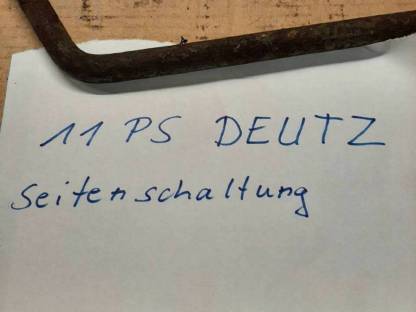 11 PS DEUTZ
Seitenschaltung